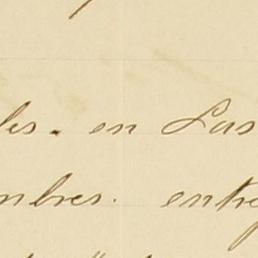 les. en Las
mbres. entre